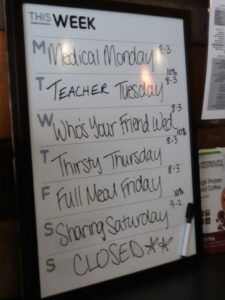 THIS WEEK
M Medical Monday 8-3
10%
T TEACHER Tuesday 8-3
W Who's Your Friend Wed 8-3
10%
T Thirsty Thursday 8-3
F Full Meal Friday 8-3
10%
S Sharing Saturday 9-2
S CLOSED
HERBALIFE
High Protein
Iced Coffee